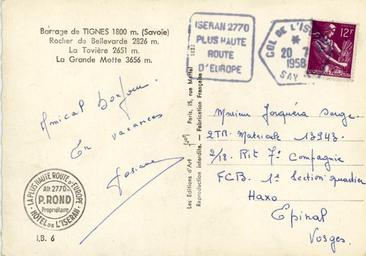 Barrage de TIGNES 1800 m. (Savoie)
Rocher de Bellevarde 2826 m.
La Tovière 2651 m.
La Grande Motte 3656 m.
Amical Bonjour
En vacances
Josiane
LA PLUS HAUTE ROUTE D'EUROPE
Alt 2770
P. ROND
Propriétaire
HÔTEL DE L'ISERAN
I.B. 6
Les Editions d'Art
Paris, 15, rue Martel
Reproduction interdite. - Fabrication Française
ISERAN 2770
PLUS HAUTE
ROUTE
D'EUROPE
COL DE L'ISE
20 7
1958
SAV
12F
Monsieur Josquéra Serge
2TR. Matricule 13943
2/18. Rit 7e Compagnie
FCB. 1e Section quartier
Haxo
Epinal
Vosges.